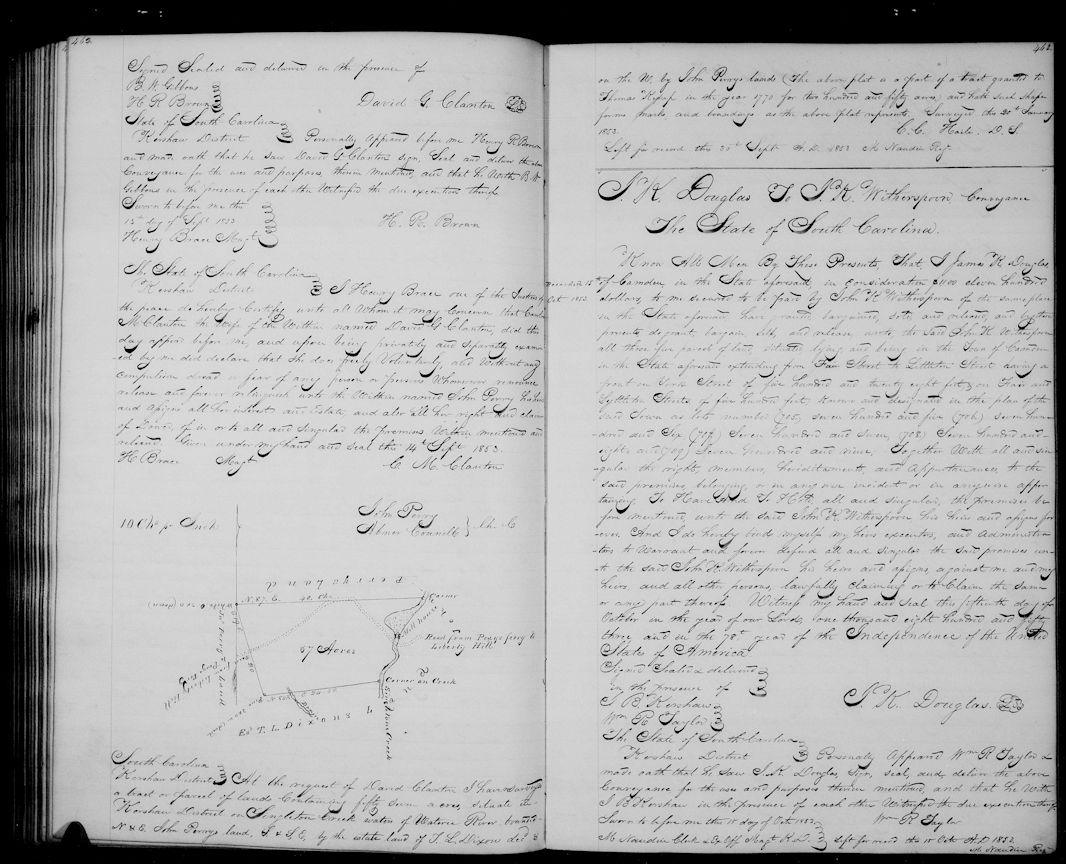 462.
Signed Sealed and delivered in the presence of
B. W. Gibbons
H R Brown
David G. Clanton
State of South Carolina
Kershaw District
Personally Appeared before me Henry R Brown
and made oath that he saw David G Clanton sign, Seal and deliver the above
Conveyance for the uses and purposes therein mentioned, and that he with B. W.
Gibbons in the presence of each other Witnessed the due execution thereof
Sworn to before me this
15th day of Sept 1853
H. R. Brown
Henry Brace Magt
The State of South Carolina
Kershaw District
I Henry Brace one of the Justices of
the peace do hereby Certify unto all Whom it may Concern that
M Clanton the Wife of the Within named David G Clanton, did this
day appear before me, and upon being privately and separately examin
ed by me did declare that She does freely Voluntarily, and Without any
Compulsion dread or fear of any person or persons Whomsoever renounce
release and forever relinquish unto the Within named John Perry his heirs
and assigns all her interest and Estate, and also all her right and claim
of Dower, of in or to all and singular the premises Within mentioned and
released. Given under my hand and seal this 14th Sept 1853.
H Brace Magt
C. M. Clanton
John Perry
Abner Council
Ch. C
10 Chs pr Inch
Perrys Land
N. 87 E. 42 Chs
Corner
Road from Perrys ferry to
Liberty Hill
57 Acres
Corner on Creek
Singleton Creek
Est T. L. Dixons L
South Carolina
Kershaw District
At the request of David Clanton I have surveyed
a tract or parcel of land Containing fifty seven acres, situate in
Kershaw District on Singleton Creek waters of Wateree River bounded
N & E. John Perrys land, S & S.E. by the estate land of T. L. Dixon decd &
462
on the W. by John Perrys lands (The above plat is a part of a tract granted to
Thomas in the year 1770 for two hundred and fifty acres) and hath such shape
forms marks and boundings as the above plat represents. Surveyed this 20th January
1853.
C. C. Haile. D. S.
Left for record this Sept A. D. 1853 M Naudin Reg
J. K. Douglas To J. K. Witherspoon Conveyance
The State of South Carolina.
Know All Men By These Presents, That, I James K Douglas
Oct 1853
of Camden in the State aforesaid, in consideration $1100 eleven hundred
dollars, to me secured to be paid by John K Witherspoon of the same place
in the State aforesaid have granted bargained, sold, and released, and by these
presents do grant bargain sell, and release, unto, the said John K. Witherspoon
all those five parcels of land, situate, lying and being in the Town of Camden
in the State aforesaid extending from Fair Street to Lyttleton Street having a
front on York Street of five hundred and twenty eight feet, on Fair and
Lyttleton Streets of five hundred feet, known and designated in the plan of the
said Town as lots number (705) seven hundred and five (706) Seven hun-
dred and Six (707) Seven hundred and seven, (708) Seven hundred and
eight, and (709) Seven hundred and nine; Together With all and sin-
gular the rights, members, hereditaments, and Appurtenances, to the
said premises belonging, or in any wise incident or in anywise apper-
taining. To Have And To Hold all and singular, the premises be-
fore mentioned, unto the said John K. Witherspoon his heirs and assigns for-
ever. And I do hereby bind myself my heirs executors, and Administra-
tors to Warrant and forever defend all and singular the said premises un-
to the said John K. Witherspoon his heirs and assigns, against me and my
heirs, and all other persons, lawfully claiming or to Claim the same
or any part thereof. Witness my hand and seal this fifteenth day of
October in the year of our Lord, one thousand eight hundred and fifty
three and in the 78th year of the Independence of the United
States of America
Signed Sealed & delivered
in the presence of
J. K. Douglas.
J B. Kershaw
Wm R Taylor
The State of South Carolina
Kershaw District
Personally Appeared Wm R Taylor &
made oath that he saw J. K Douglas, sign, seal, and, deliver the above
Conveyance for the uses and purposes therein mentioned, and that he With
J B. Kershaw in the presence of each other Witnessed the due execution thereof
Sworn to before me this day of Oct 1853
Wm R Taylor
M Naudin Clk & Ex Off Magt K. D.
Left for record the 15 Oct A. D 1853
M Naudin Reg